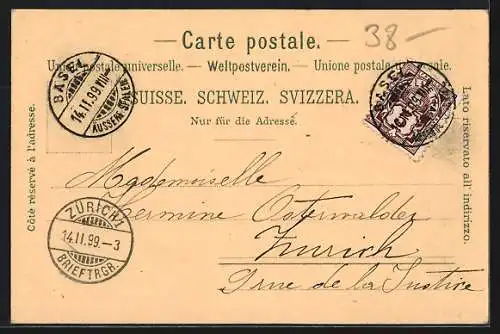 38 —
— Carte postale. —
Union postale universelle. — Weltpostverein. — Unione postale universale.
SUISSE. SCHWEIZ. SVIZZERA.
Nur für die Adresse.
Côté réservé à l'adresse.
Lato riservato all' indirizzo.
BASEL
14.II.99.VIII-
AUSSERE SPALEN
BASEL
5
ZÜRICH 1
14.II.99.-3
BRIEFTRGR.
Mademoiselle
Hermine Osterwalder
Zurich
9 rue de la Justice